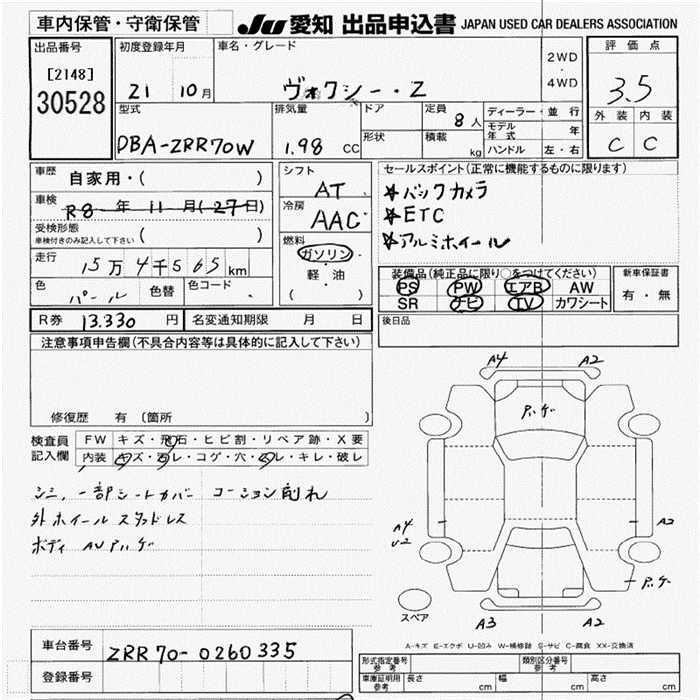 車内保管・守衛保管
JU 愛知 出品申込書 JAPAN USED CAR DEALERS ASSOCIATION
出品番号
[2148]
30528
初度登録年月
21 10月
車名・グレード
ヴォクシー・Z
2WD
・
4WD
評価点
3.5
外装 内装
C C
型式
DBA-ZRR70W
排気量
1.98 CC
ドア
形状
定員
8人
積載
kg
ディーラー・並行
モデル年式 年
ハンドル 左・右
車歴 自家用・( )
車検 R8 年 11 月(27日)
受検形態
車検付きのみ記入して下さい ( )
走行 15万4千565km
色 パール 色替 色コード
シフト
AT
冷房
AAC
燃料
ガソリン
軽・油
( )
セールスポイント(正常に機能するものに限ります)
★バックカメラ
★ETC
★アルミホイール
装備品(純正品に限り〇をつけてください)
PS PW エアB AW
SR ナビ TV カワシート
新車保証書
有・無
R券 13.330 円 名変通知期限 月 日
後日品
注意事項申告欄(不具合内容等は具体的に記入して下さい)
修復歴 有 〔箇所 〕
検査員
記入欄
FW キズ・飛石・ヒビ割・リペア跡・X要
内装 キズ・汚レ・コゲ・穴・スレ・キレ・破レ
シミ、一部シートカバー コーション削れ
外ホイール スタッドレス
ボディ AUアハゲ
車台番号 ZRR70-0260335
登録番号
A4 A2
アハゲ
A4
U2
A2
アハゲ
スペア
A3 A2
A-キズ E-エクボ U-凹み W-補修跡 S-サビ C-腐食 XX-交換済
形式指定番号
参考
類別区分番号
参考
車庫証明用
参考
長さ cm 幅 cm 高さ cm